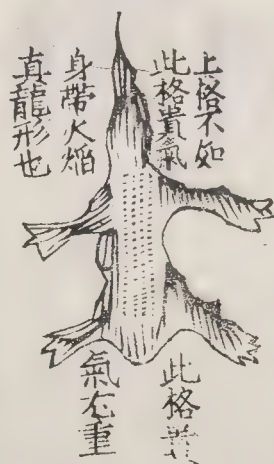 上格不如
此格貴氣
身帶火焰
真龍形也
此格
氣重